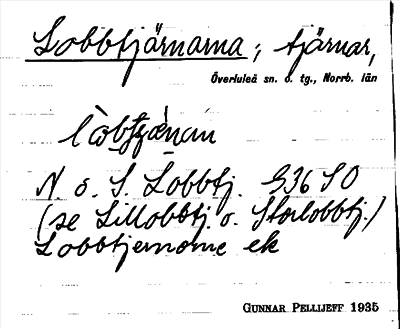 Lobbtjärnarna, tjärnar,
Överluleå sn. o. tg., Norrb. län
N. o. S. Lobbtj. G36 SO
(se Lillobbtj. o. Storlobbtj.)
Lobbtjernarne ek
GUNNAR PELLIJEFF 1935